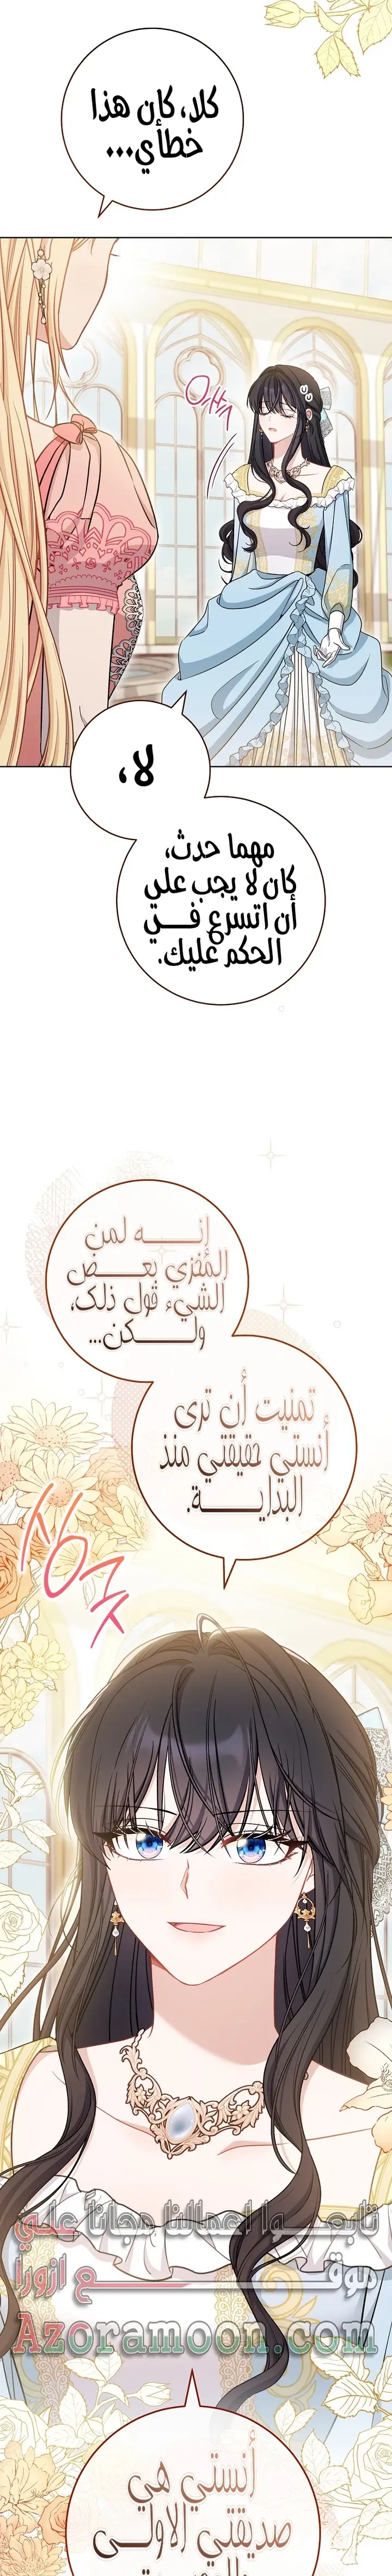 كلا، كان هذا
خطأي...
لا،
مهما حدث،
كان لا يجب علي
أن اتسرع في
الحكم عليك.
إنه لمن
المخزي بعض
الشيء قول ذلك،
ولكن...
تمنيت أن ترى
أنستي حقيقتي منذ
البداية.
싱긋
تابعوا اعمالنا مجاناً على
موقع ازورا
Azoramoon.com
أنستي هي
صديقتي الاولى